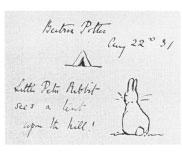 Beatrix Potter
Aug 22nd 31
Little Peter Rabbit
sees a tent
upon the hill!